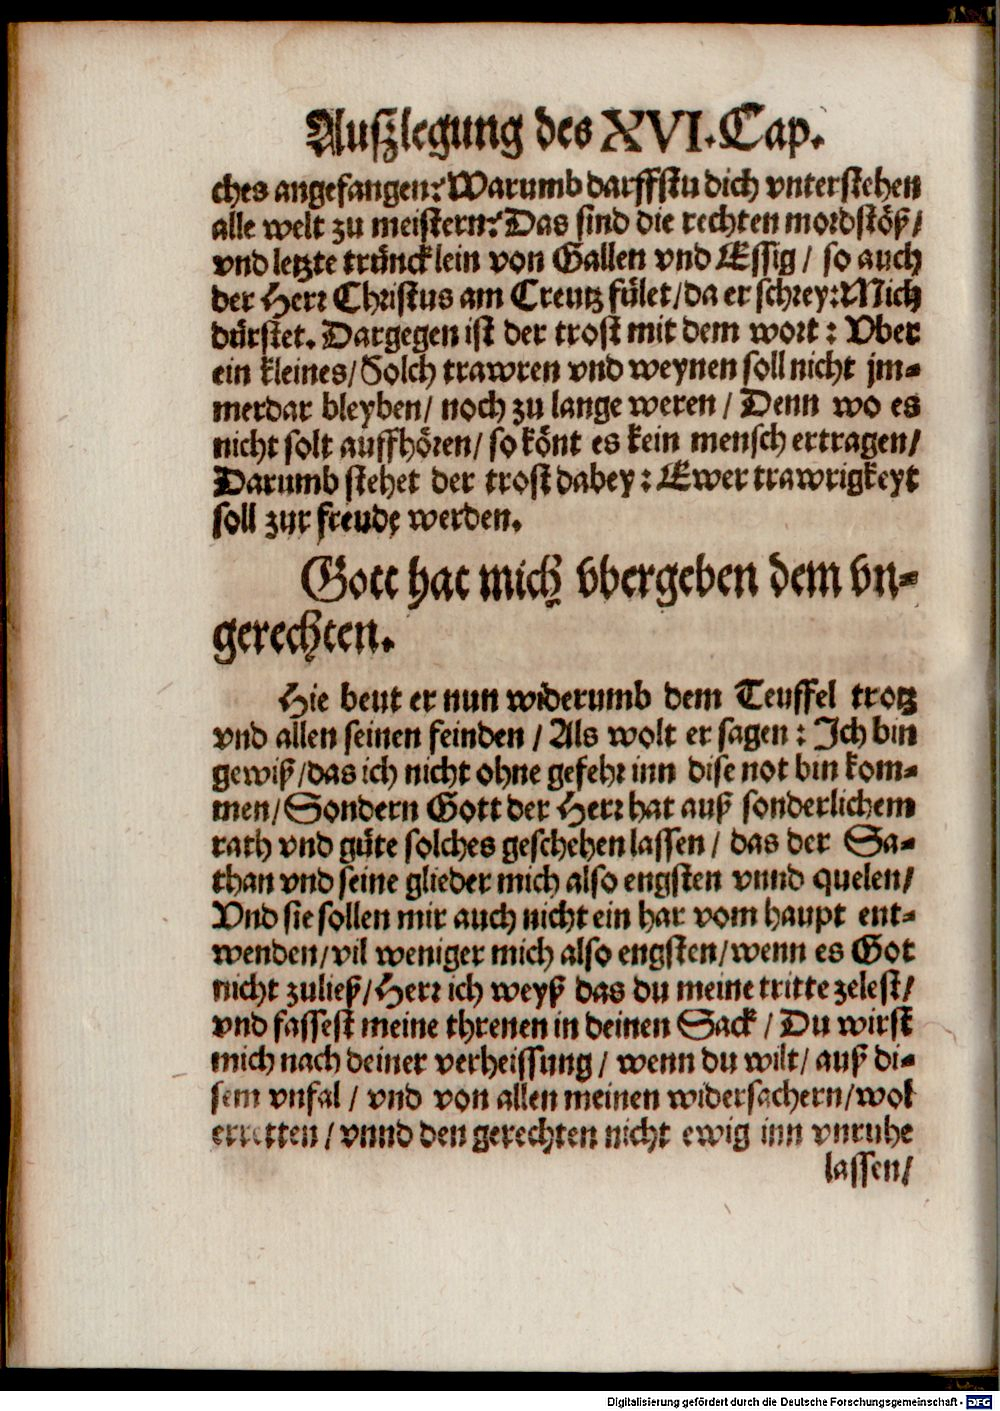 Außlegung des XVI. Cap.
ches angefangen? Warumb darffstu dich vnterstehen
alle welt zu meistern? Das sind die rechten mordstöß/
vnd letzte trüncklein von Gallen vnd Essig / so auch
der Herr Christus am Creutz fület/da er schrey: Mich
dürstet. Dargegen ist der trost mit dem wort : Vber
ein kleines/Solch trawren vnd weynen soll nicht jm-
merdar bleyben/ noch zu lange weren / Denn wo es
nicht solt auffhören/ so könt es kein mensch ertragen/
Darumb stehet der trost dabey : Ewer trawrigkeyt
soll zur freude werden.
Gott hat mich vbergeben dem vn-
gerechten.
Hie beut er nun widerumb dem Teuffel trotz
vnd allen seinen feinden / Als wolt er sagen : Ich bin
gewiß/das ich nicht ohne gefehr inn dise not bin kom-
men/Sondern Gott der Herr hat auß sonderlichem
rath vnd güte solches geschehen lassen / das der Sa-
than vnd seine glieder mich also engsten vnnd quelen/
Vnd sie sollen mir auch nicht ein har vom haupt ent-
wenden/vil weniger mich also engsten/wenn es Got
nicht zuließ/Herr ich weyß das du meine tritte zelest/
vnd fassest meine threnen in deinen Sack / Du wirst
mich nach deiner verheissung / wenn du wilt/ auß di-
sem vnfal / vnd von allen meinen widersachern/wol
erretten / vnnd den gerechten nicht ewig inn vnruhe
lassen/
Digitalisierung gefördert durch die Deutsche Forschungsgemeinschaft - DFG